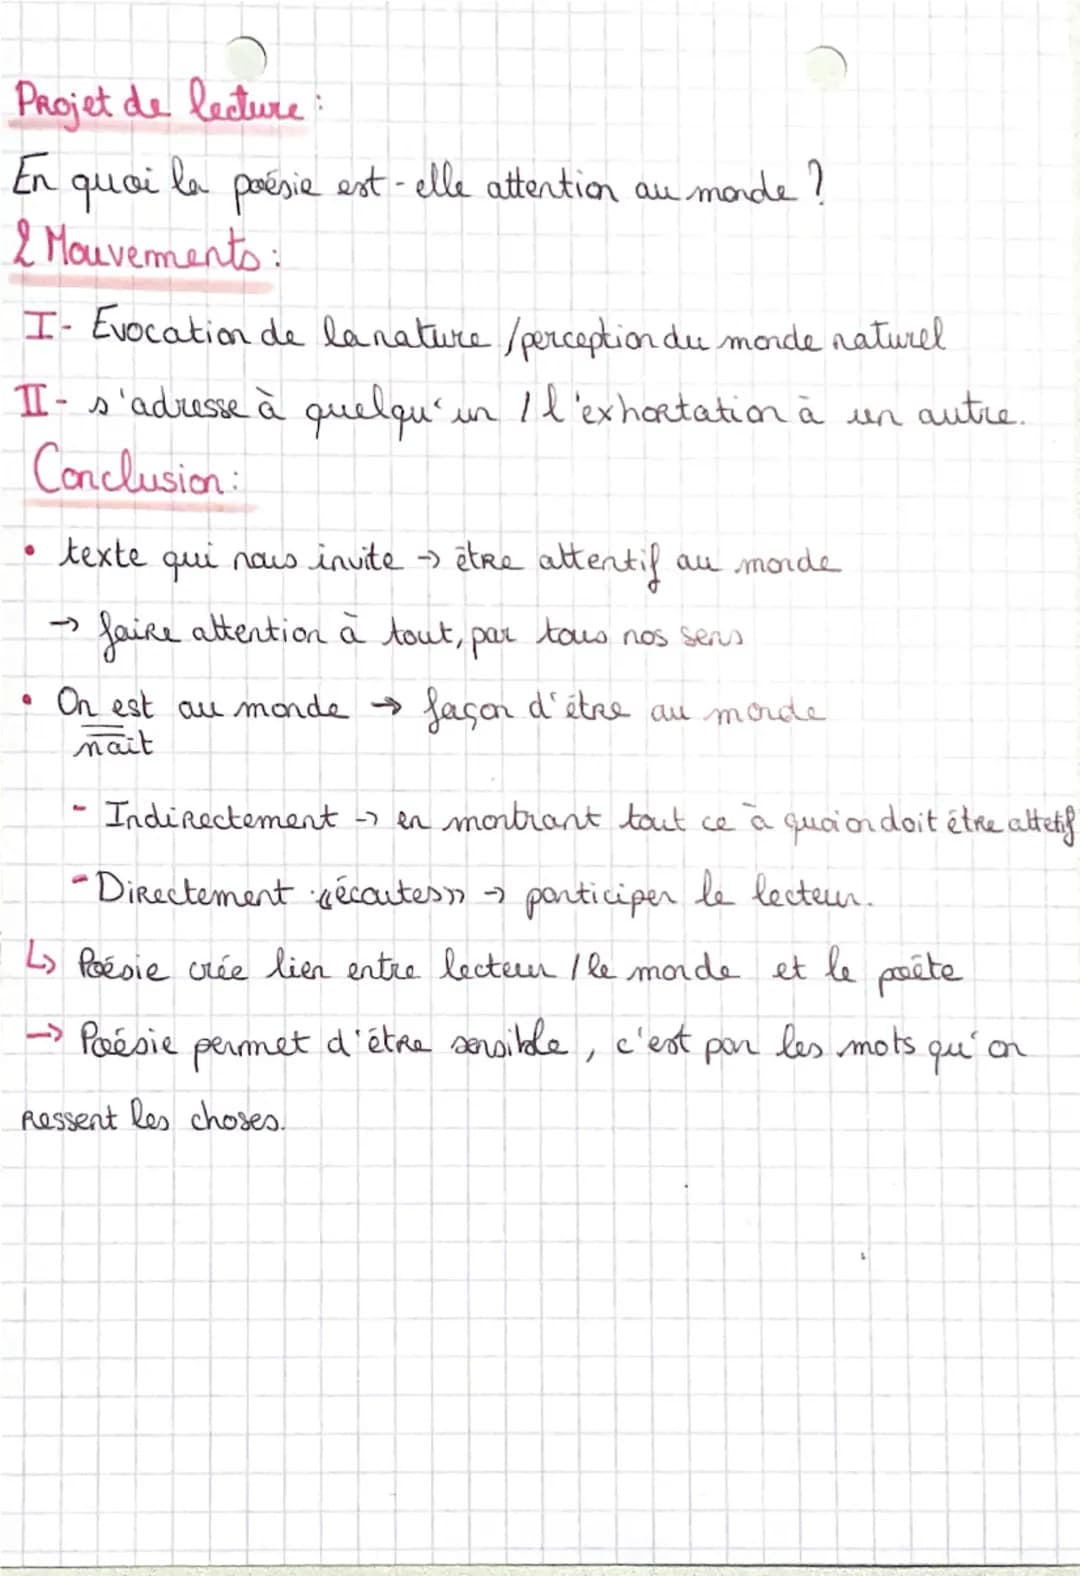 Projet de lecture :
En quoi la poésie est-elle attention au monde ?
2 Mouvements :
I- Evocation de la nature / perception du monde naturel
II- s'adresse à quelqu'un / l'exhortation à un autre.
Conclusion :
• texte qui nous invite → être attentif au monde
→ faire attention à tout, par tous nos sens
• On est au monde → façon d'être au monde
nait
- Indirectement → en montrant tout ce à quoi on doit être attetif
- Directement «écoutes» → participer le lecteur.
↳ Poésie crée lien entre lecteur / le monde et le poète
→ Poésie permet d'être sensible, c'est par les mots qu'on
ressent les choses.